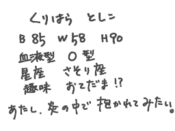 くりはら としこ
B 85 W 58 H 90
血液型 O型
星座 さそり座
趣味 おてだま!?
あたし、炎の中で抱かれてみたい。